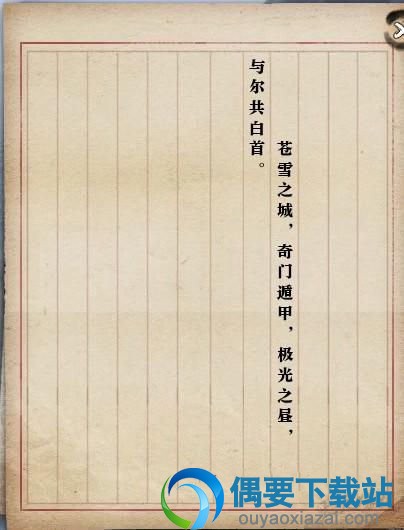 苍雪之城，奇门遁甲，极光之昼，
与尔共白首。
偶要下载站
ouyaoxiazai.com